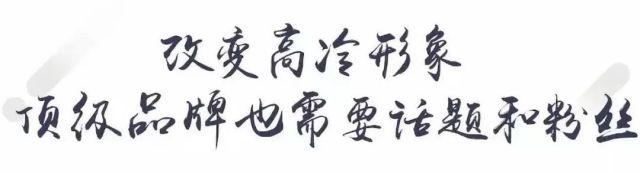 改变高冷形象
顶级品牌也需要话题和粉丝